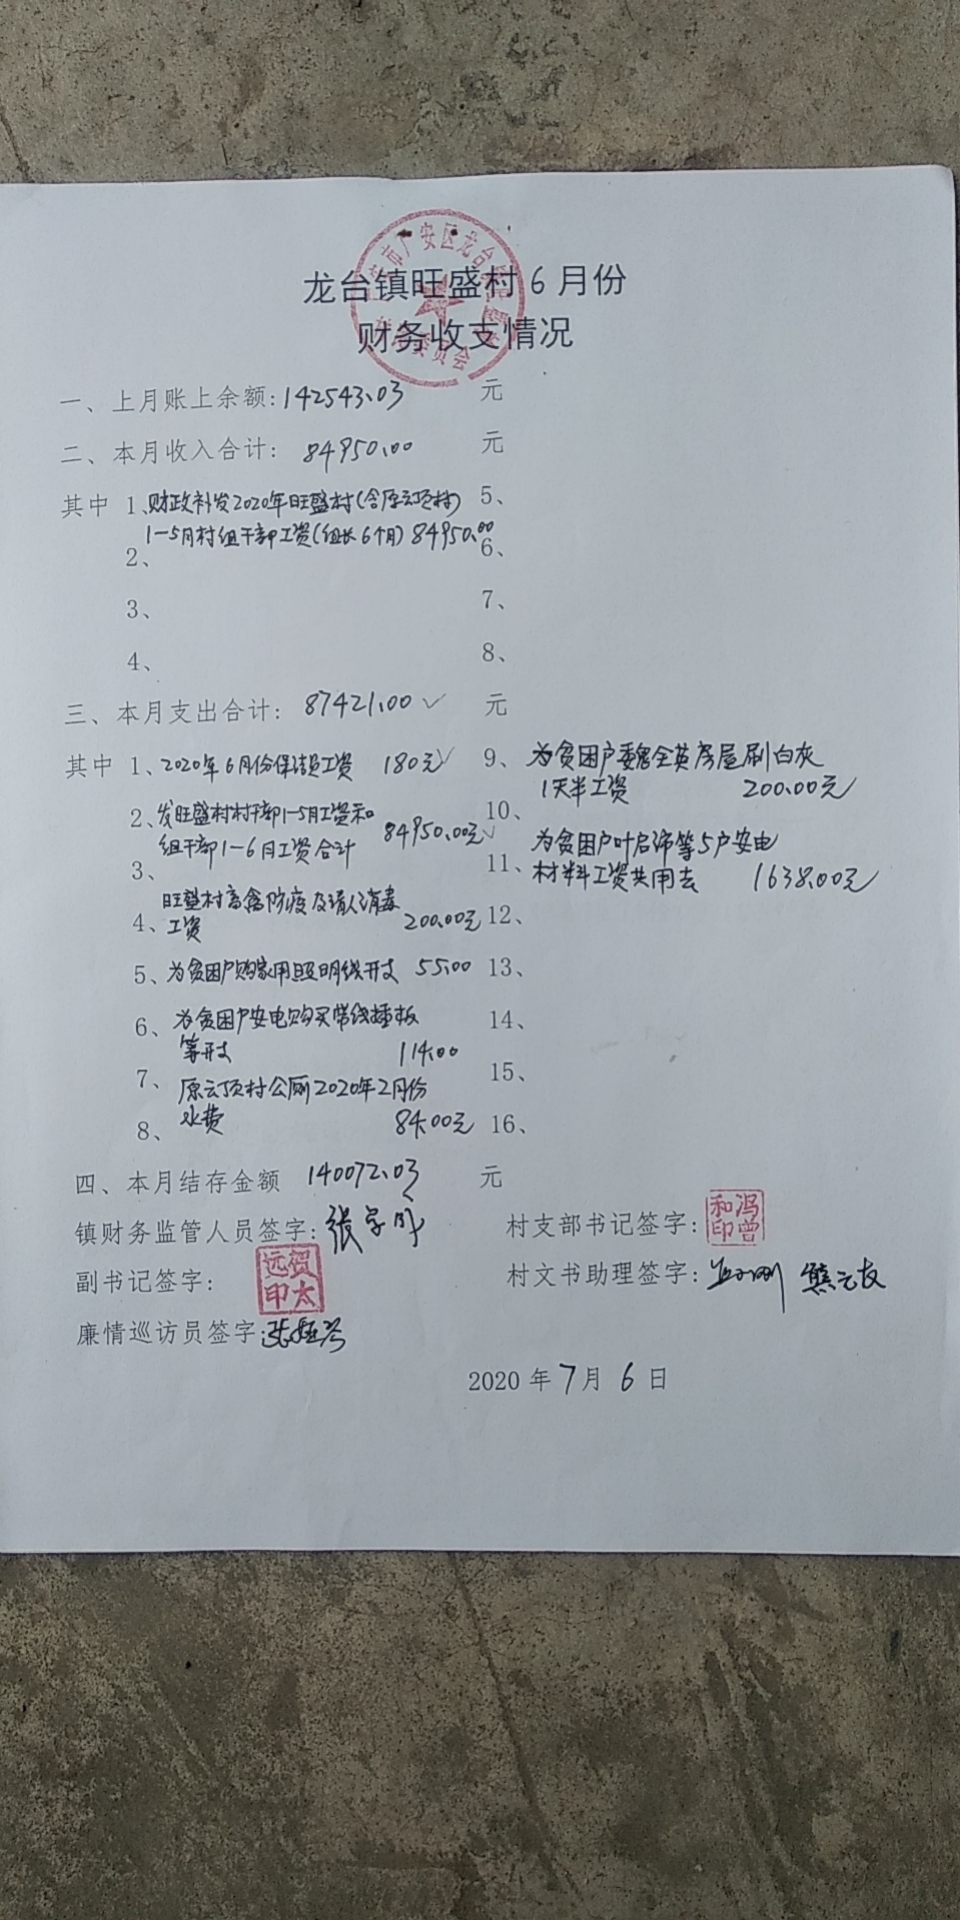 龙台镇旺盛村6月份
财务收支情况
一、上月账上余额:142543.03 元
二、本月收入合计: 84950.00 元
其中 1、财政补发2020年旺盛村(含原云顶村) 5、
1-5月村组干部工资(组长6个月) 84950.00
2、 6、
3、 7、
4、 8、
三、本月支出合计: 87421.00 ✓ 元
其中 1、2020年6月份保洁员工资 180元✓ 9、为贫困户魏全英房屋刷白灰
1天半工资 200.00元
2、发旺盛村村干部1-5月工资和 10、
组干部1-6月工资合计 84950.00元✓
为贫困户叶启沛等5户安电
3、 11、材料工资共用去 1638.00元
旺盛村畜禽防疫及请人消毒
4、工资 200.00元 12、
5、为贫困户购家用照明线开支 55.00 13、
6、为贫困户安电购买带线插板 14、
等开支 114.00
7、原云顶村公厕2020年2月份 15、
水费 84.00元
8、 16、
四、本月结存金额 140072.03 元
镇财务监管人员签字: 村支部书记签字: 冯曾和印
副书记签字: 贺太远印 村文书助理签字: 熊云友
廉情巡访员签字:
2020年7月6日